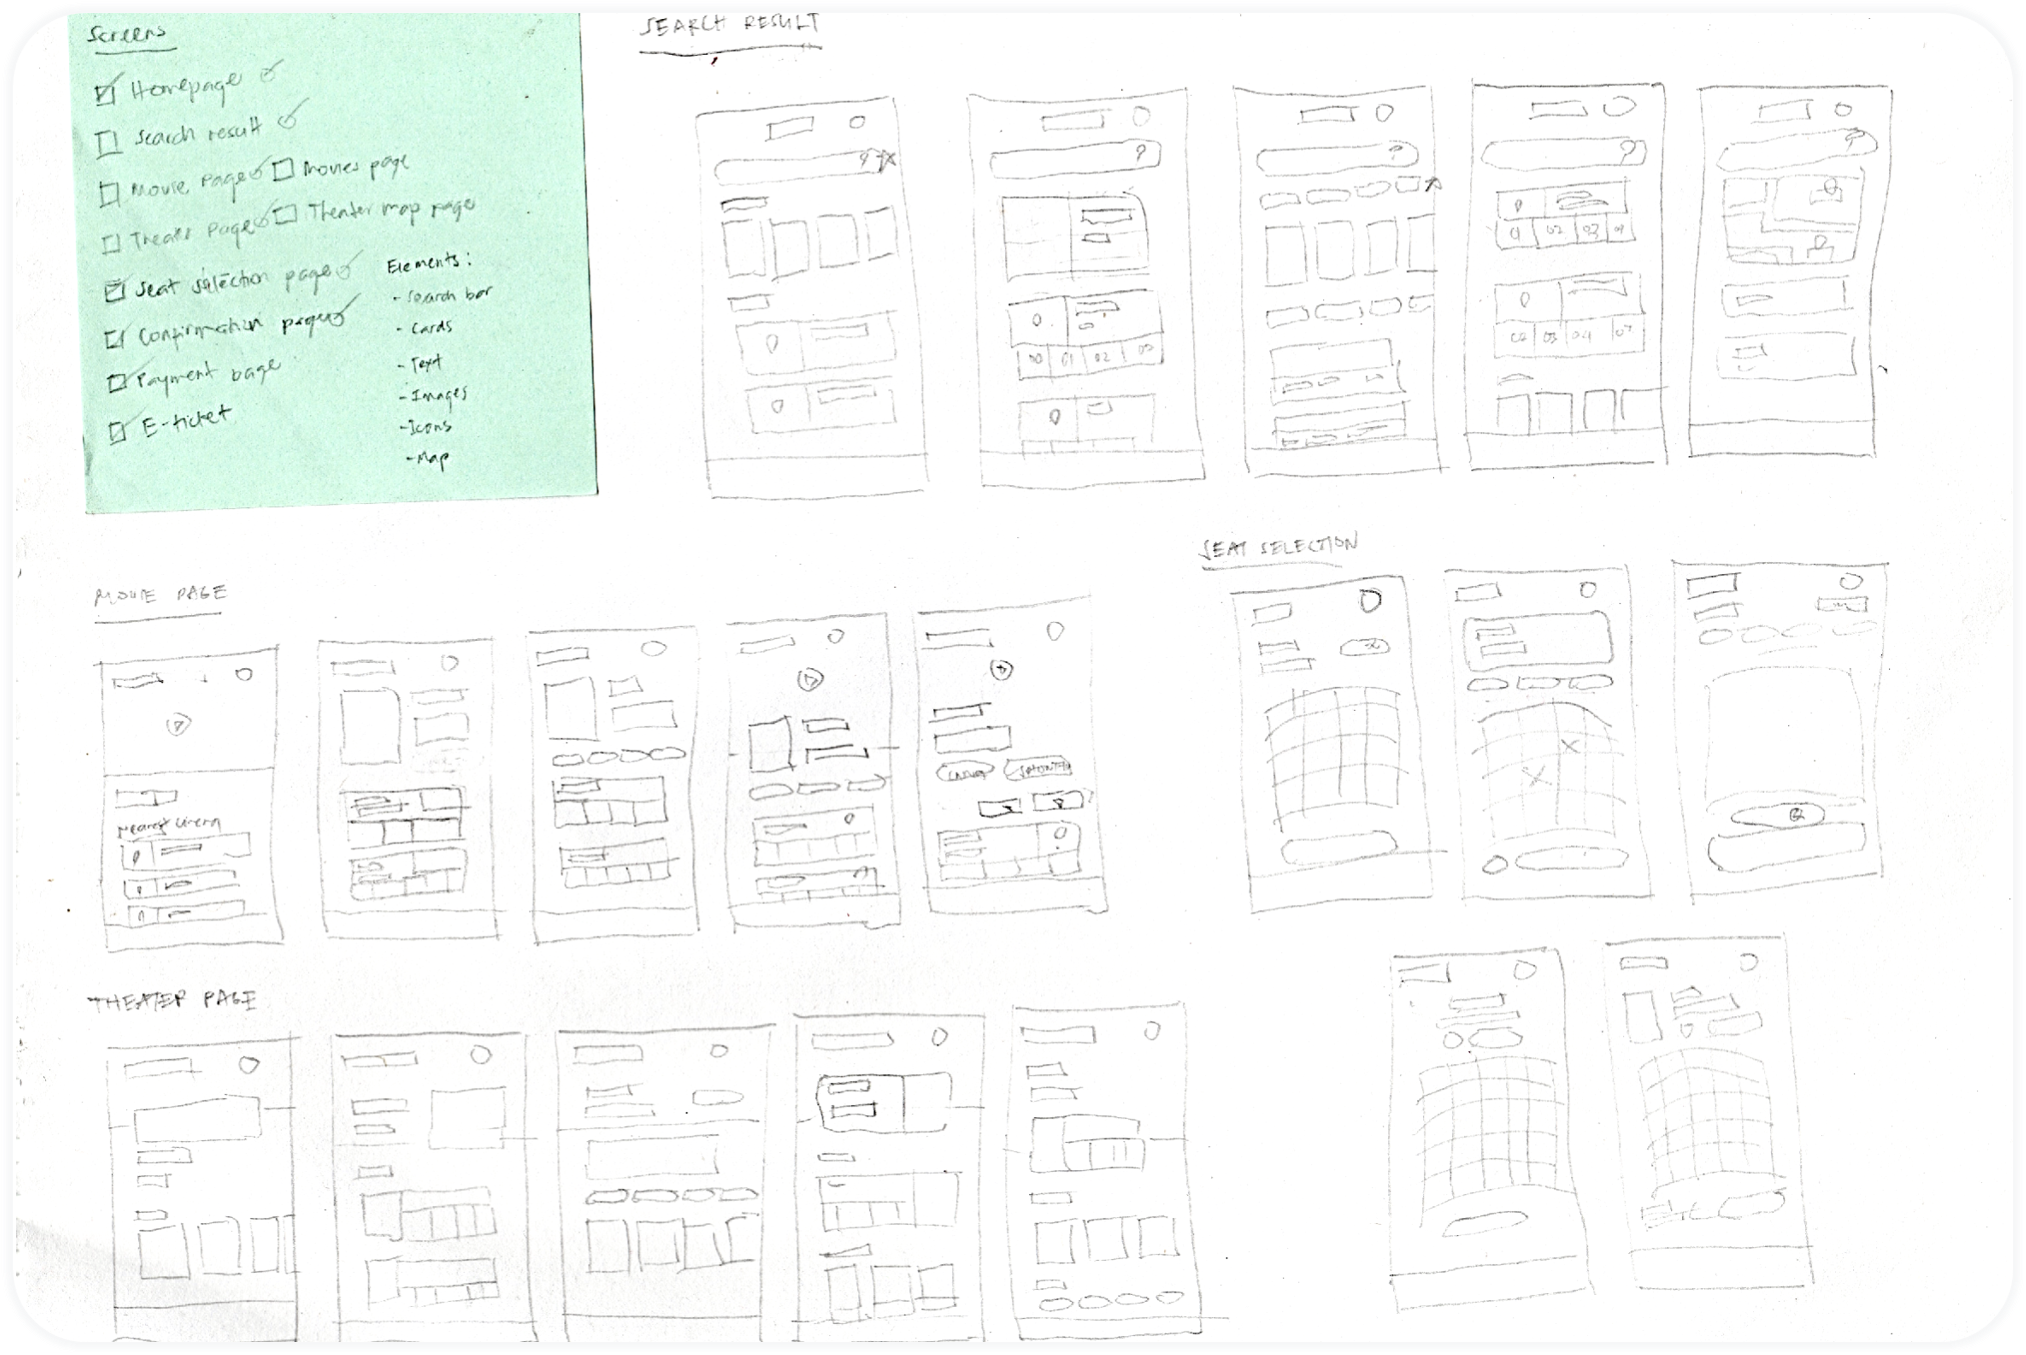 Screens
Homepage
Search result
Movie Page Movies page
Theater Page Theater map page
Seat selection page
Confirmation page
Payment page
E-ticket
Elements:
- Search bar
- Cards
- Text
- Images
- Icons
- Map
SEARCH RESULT
00 01 02
01 02 03 04
SEAT SELECTION
MOVIE PAGE
Nearest cinema
THEATER PAGE